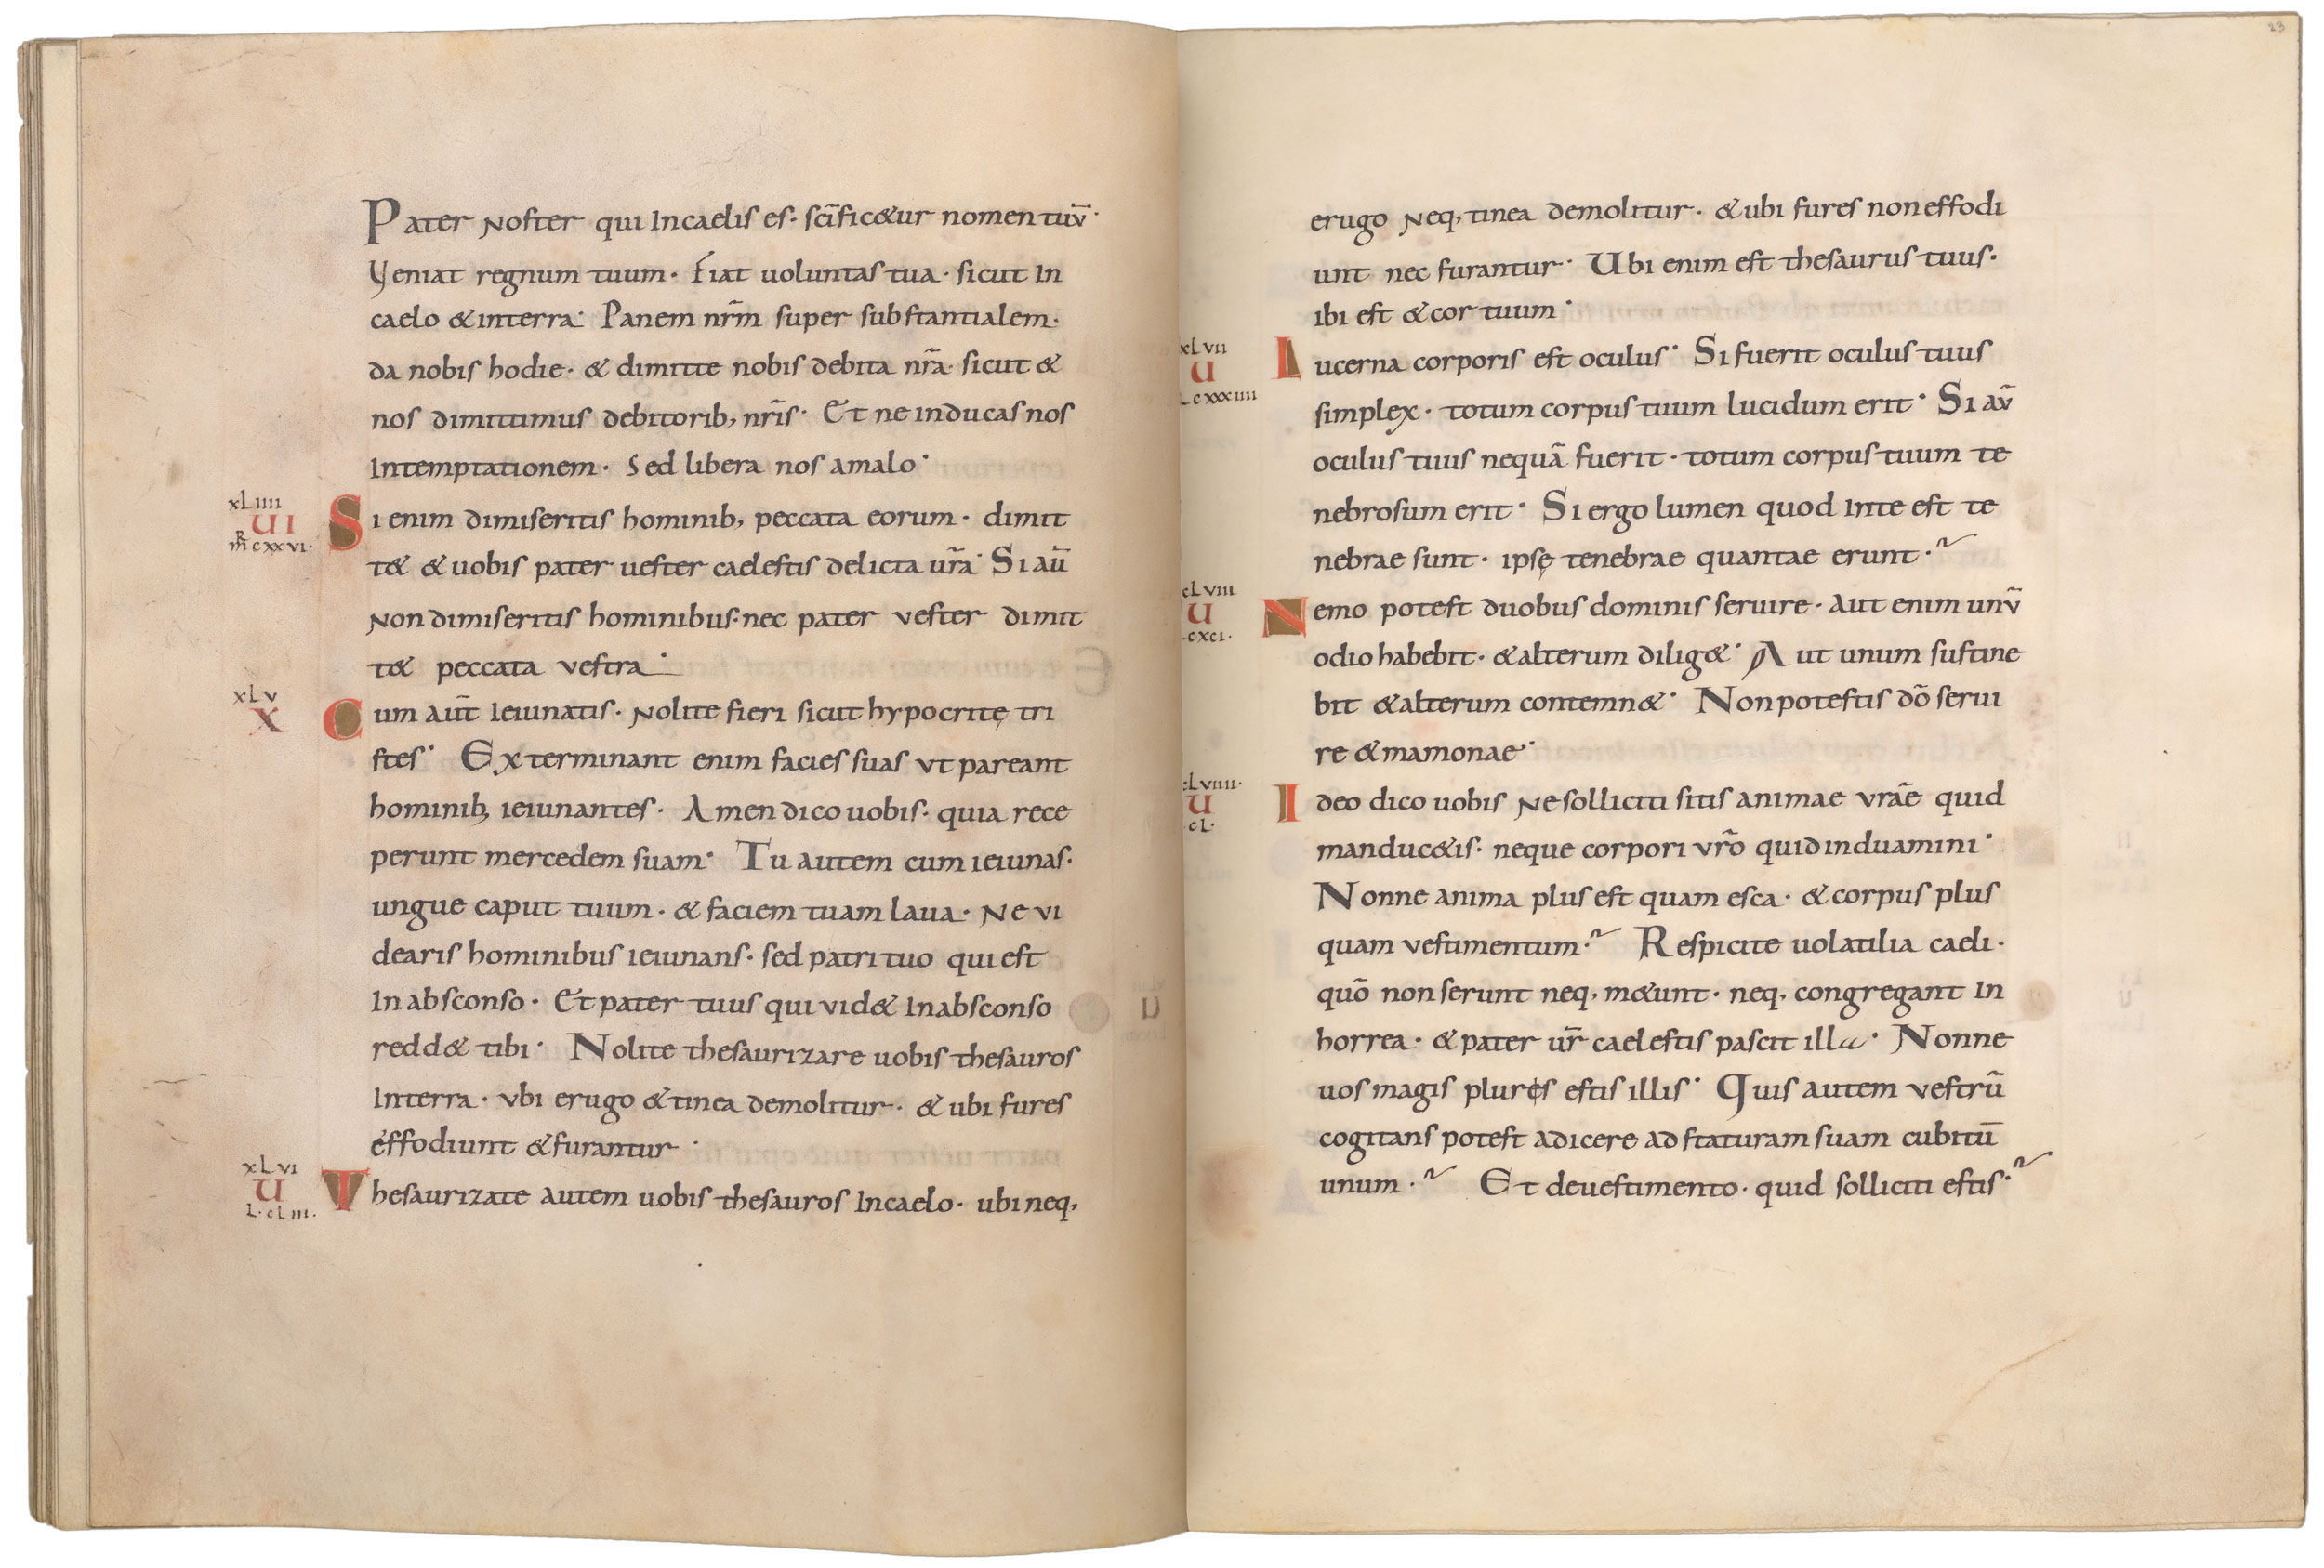 Pater noster qui Incaelis es· sc̄ific&ur nomen tuū·
Veniat regnum tuum· Fiat uoluntas tua· sicut In
caelo &interra· Panem nr̄m super substantialem·
da nobis hodie· & dimitte nobis debita nr̄a· sicut &
nos dimittimus debitorib; nr̄is· Et ne inducas nos
Intemptationem· Sed libera nos amalo·
xLIIII
UI
m̄R cxxvi·
Si enim dimiseritis hominib; peccata eorum· dimit
t& & uobis pater uester caelestis delicta ur̄a· Si aū
non dimiseritis hominibus· nec pater vester dimit
t& peccata vestra·
xLv
X
Cum aūt Ieiunatis· nolite fieri sicut hypocritę tri
stes· Exterminant enim facies suas vt pareant
hominib; ieiunantes· Amen dico uobis· quia rece
perunt mercedem suam· Tu autem cum ieiunas·
ungue caput tuum· & faciem tuam laua· Ne vi
dearis hominibus ieiunans· sed patri tuo qui est
Inabsconso· Et pater tuus qui vid& Inabsconso
redd& tibi· Nolite thesaurizare uobis thesauros
Interra· vbi erugo &tinea demolitur· & ubi fures
effodiunt &furantur·
xLvi
U
L·cLIII·
Thesaurizate autem uobis thesauros Incaelo· ubi neq;
23
erugo neq; tinea demolitur· & ubi fures non effodi
unt nec furantur· Ubi enim est thesaurus tuus·
ibi est & cor tuum·
xLvii
U
Lcxxxiiii
Lucerna corporis est oculus· Si fuerit oculus tuus
simplex· totum corpus tuum lucidum erit· Si aū
oculus tuus nequā fuerit· totum corpus tuum te
nebrosum erit· Si ergo lumen quod Inte est te
nebrae sunt· ipsę tenebrae quantae erunt·
cLviii
U
·cxci·
Nemo potest duobus dominis seruire· Aut enim unū
odio habebit· &alterum dilig&· Aut unum sustine
bit &alterum contemn&· Non potestis dō serui
re &mamonae·
cLviiii·
U
cL·
Ideo dico uobis ne solliciti sitis animae vrāe quid
manduc&is· neque corpori vr̄o quid induamini·
Nonne anima plus est quam esca· & corpus plus
quam vestimentum· Respicite uolatilia caeli·
quō non serunt neq; m&unt· neq; congregant In
horrea· & pater ur̄ caelestis pascit illa· Nonne
uos magis plures estis illis· Quis autem vestrū
cogitans potest adicere ad staturam suam cubitū
unum· Et de uestimento· quid solliciti estis·